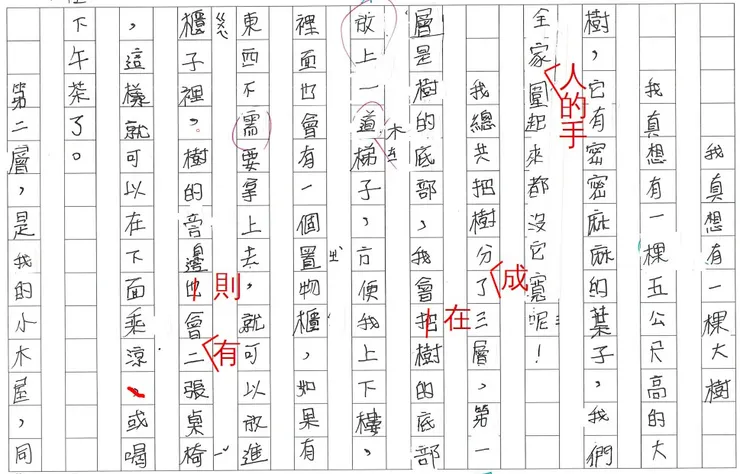 我真想有一棵大樹
我真想有一棵五公尺高的大
樹，它有密密麻麻的葉子，我們
全家人的手圍起來都沒它寬呢！
我總共把樹分成了三層，第一
層是樹的底部，我會在把樹的底部
放上一道木梯子，方便我上下樓，
裡面也會有一個置物櫃，如果有
東西不需要拿上去，就可以放進
櫃子裡。樹的旁邊則也會有二張桌椅
，這樣就可以在下面乘涼、或喝
下午茶了。
第二層，是我的小木屋，同